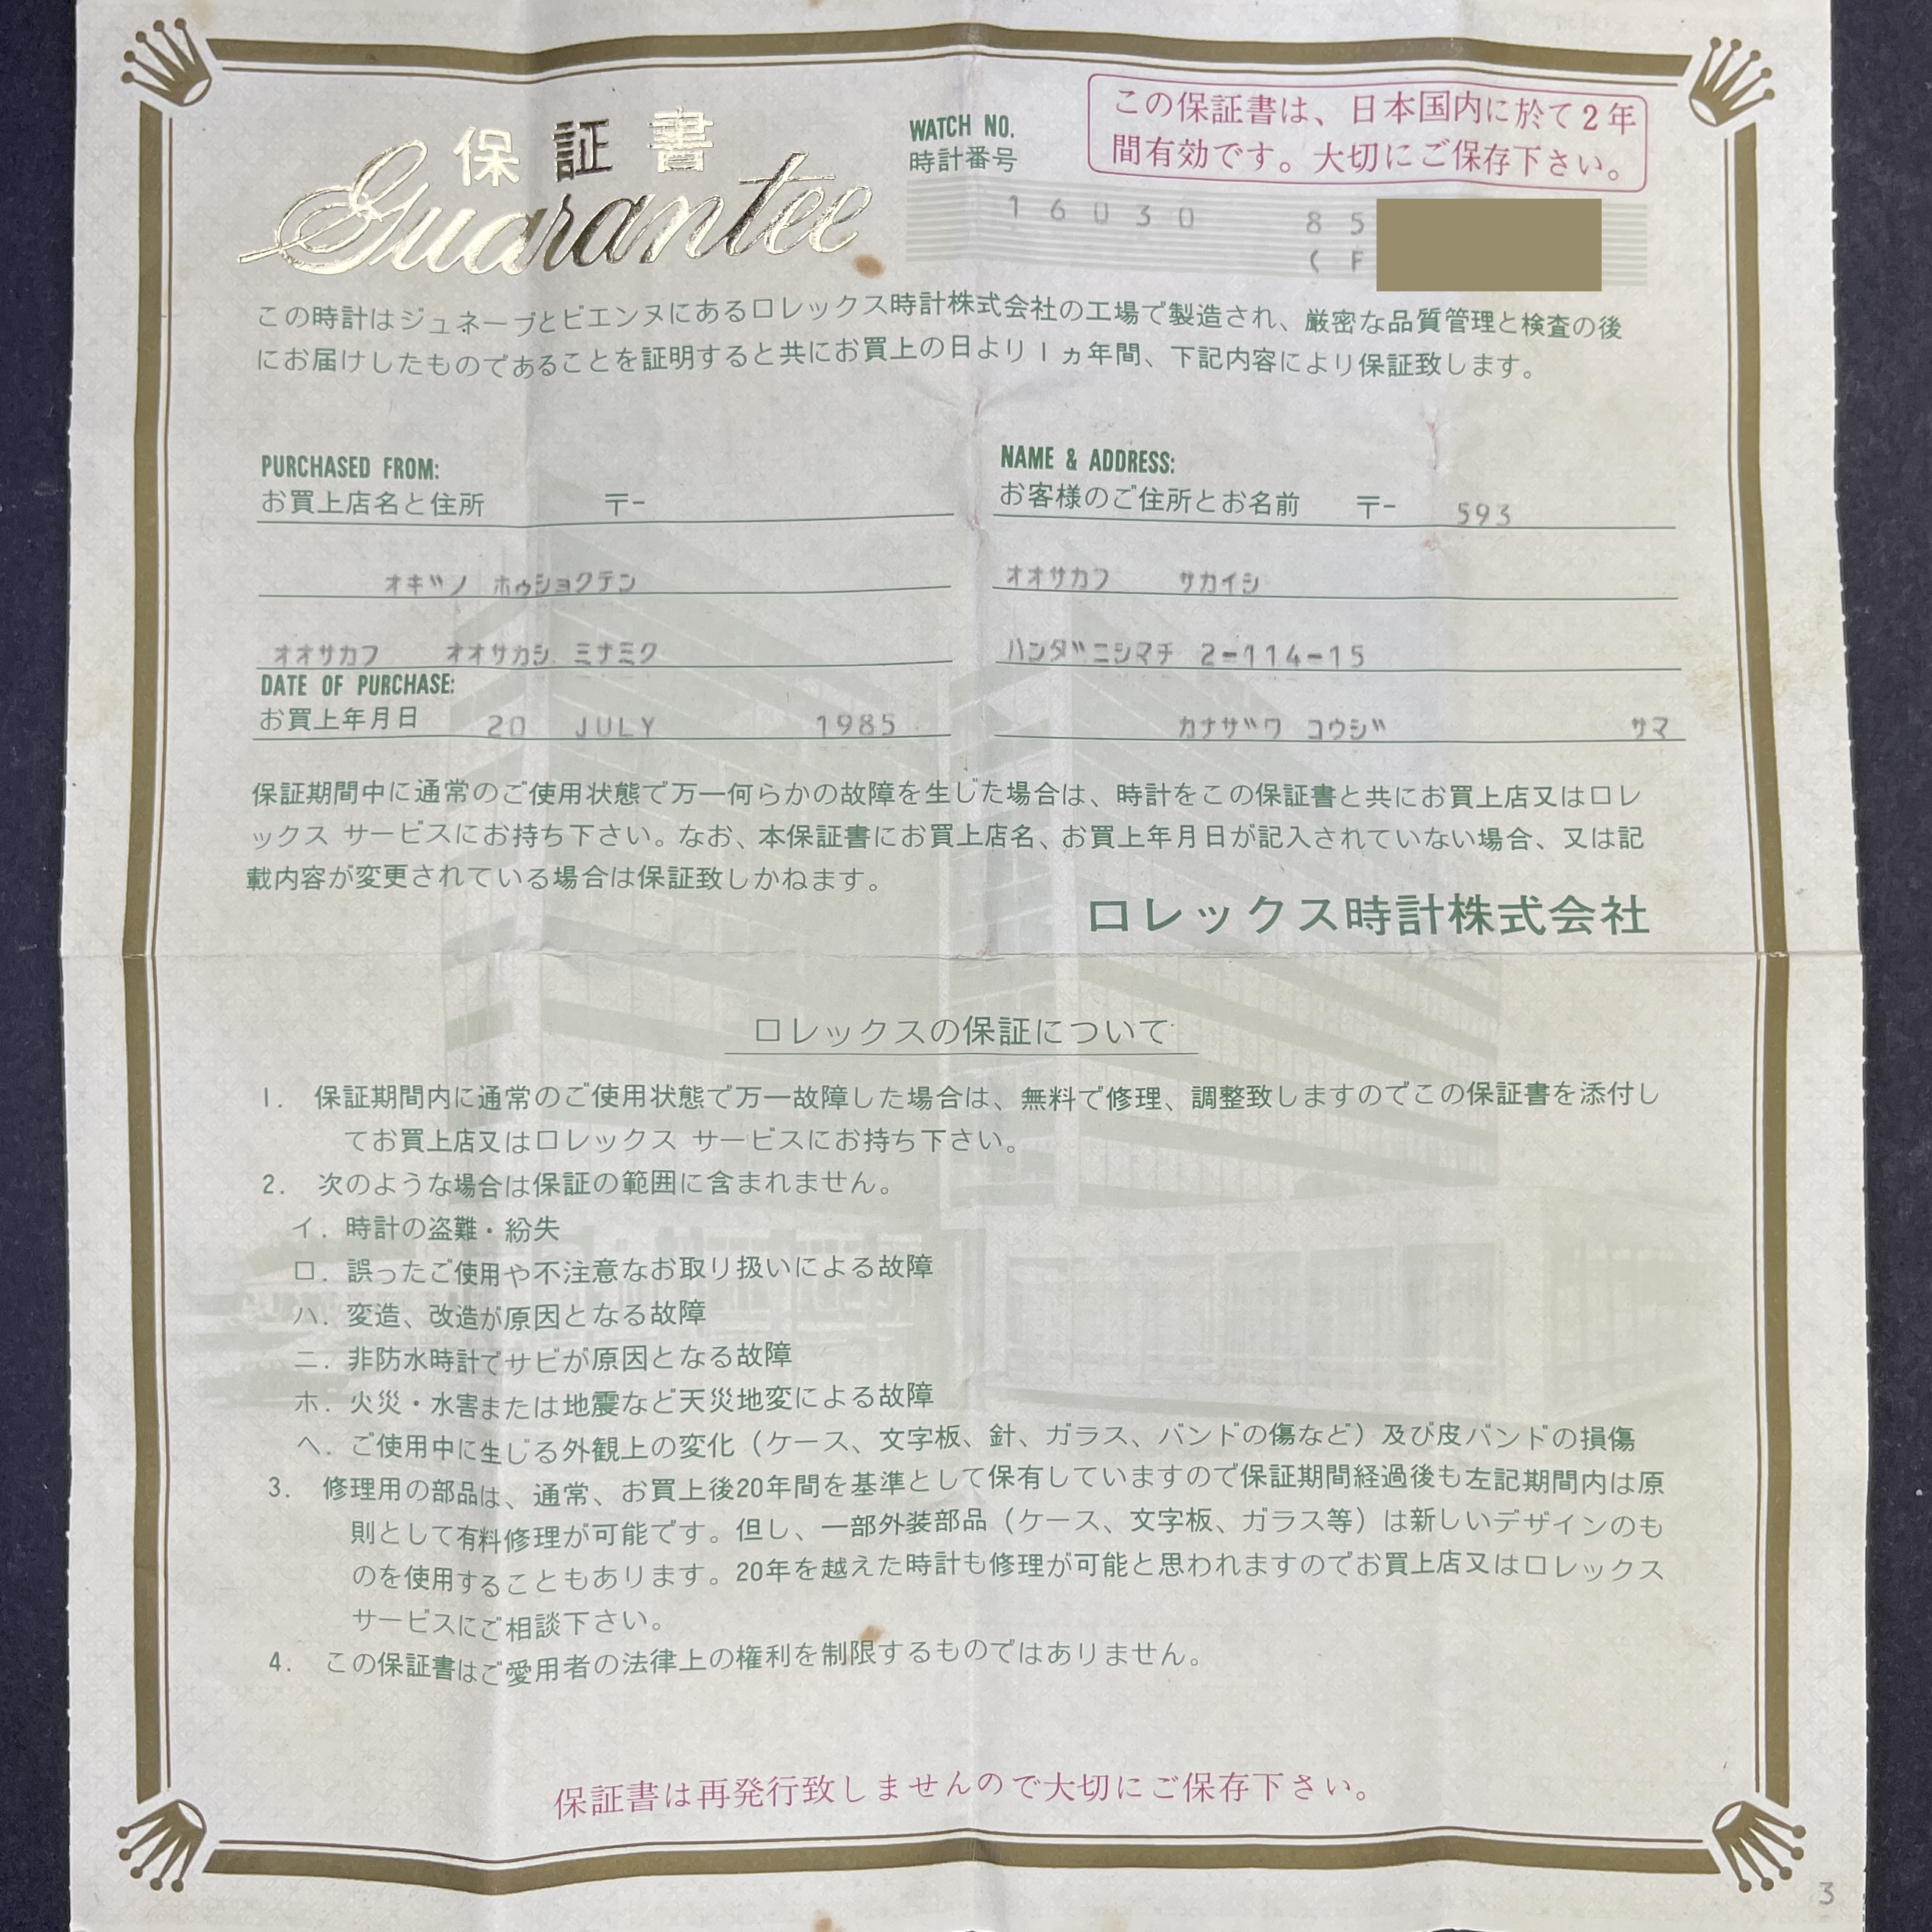 保証書
Guarantee
WATCH NO.
時計番号
この保証書は、日本国内に於て2年
間有効です。大切にご保存下さい。
16030 85
(F
この時計はジュネーブとビエンヌにあるロレックス時計株式会社の工場で製造され、厳密な品質管理と検査の後
にお届けしたものであることを証明すると共にお買上の日より1ヵ年間、下記内容により保証致します。
PURCHASED FROM:
お買上店名と住所 〒-
オキツノ ホウショクテン
オオサカフ オオサカシ ミナミク
DATE OF PURCHASE:
お買上年月日 20 JULY 1985
NAME & ADDRESS:
お客様のご住所とお名前 〒- 593
オオサカフ サカイシ
ハンダニシマチ 2-114-15
カナザワ コウジ サマ
保証期間中に通常のご使用状態で万一何らかの故障を生じた場合は、時計をこの保証書と共にお買上店又はロレ
ックス サービスにお持ち下さい。なお、本保証書にお買上店名、お買上年月日が記入されていない場合、又は記
載内容が変更されている場合は保証致しかねます。
ロレックス時計株式会社
ロレックスの保証について
1. 保証期間内に通常のご使用状態で万一故障した場合は、無料で修理、調整致しますのでこの保証書を添付し
てお買上店又はロレックス サービスにお持ち下さい。
2. 次のような場合は保証の範囲に含まれません。
イ. 時計の盗難・紛失
ロ. 誤ったご使用や不注意なお取り扱いによる故障
ハ. 変造、改造が原因となる故障
ニ. 非防水時計でサビが原因となる故障
ホ. 火災・水害または地震など天災地変による故障
ヘ. ご使用中に生じる外観上の変化（ケース、文字板、針、ガラス、バンドの傷など）及び皮バンドの損傷
3. 修理用の部品は、通常、お買上後20年間を基準として保有していますので保証期間経過後も左記期間内は原
則として有料修理が可能です。但し、一部外装部品（ケース、文字板、ガラス等）は新しいデザインのも
のを使用することもあります。20年を越えた時計も修理が可能と思われますのでお買上店又はロレックス
サービスにご相談下さい。
4. この保証書はご愛用者の法律上の権利を制限するものではありません。
保証書は再発行致しませんので大切にご保存下さい。
3